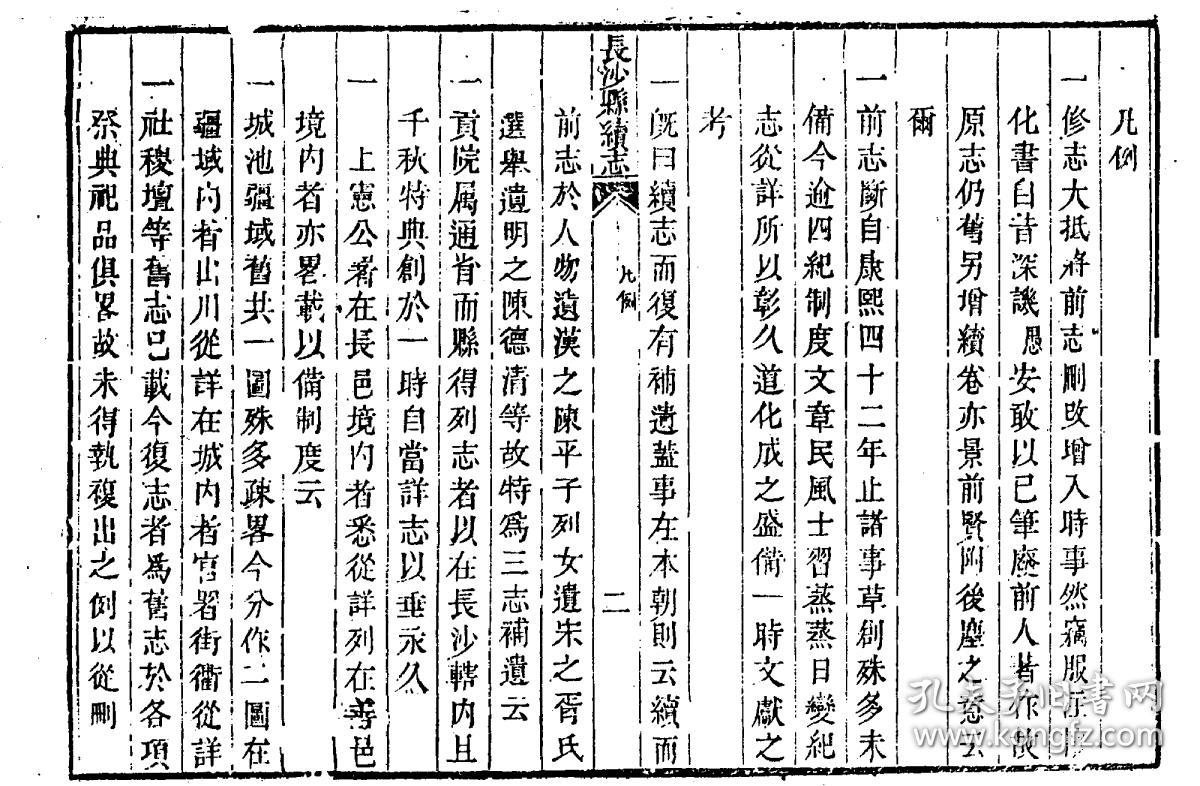 凡例
一修志大抵將前志刪改增入時事然竊服在
化書臼昔深譏愚安敢以己筆廢前人著作故
原志仍舊另增續卷亦景前賢附後塵之意云
爾
一前志斷自康熙四十二年止諸事草創殊多未
備今逾四紀制度文章民風士習蒸蒸日變紀
志從詳所以彰久道化成之盛備一時文獻之
考
長沙縣續志 凡例 二
一既曰續志而復有補遺蓋事在本朝則云續而
前志於人物遺漢之陳平子列女遺宋之胥氏
選舉遺明之陳德清等故特為三志補遺云
一貢院属通省而縣得列志者以在長沙轄内且
千秋特典創於一時自當詳志以垂永久
一上憲公署在長邑境内者悉從詳列在善邑
境内者亦畧載以備制度云
一城池疆域舊共一圖殊多疎畧今分作二圖在
疆域内者山川從詳在城内者官署街衢從詳
一社稷壇等舊志已載今復志者為舊志於各項
祭典祀品俱畧故未得執複出之例以從刪
孔夫子旧书网
www.kongfz.com